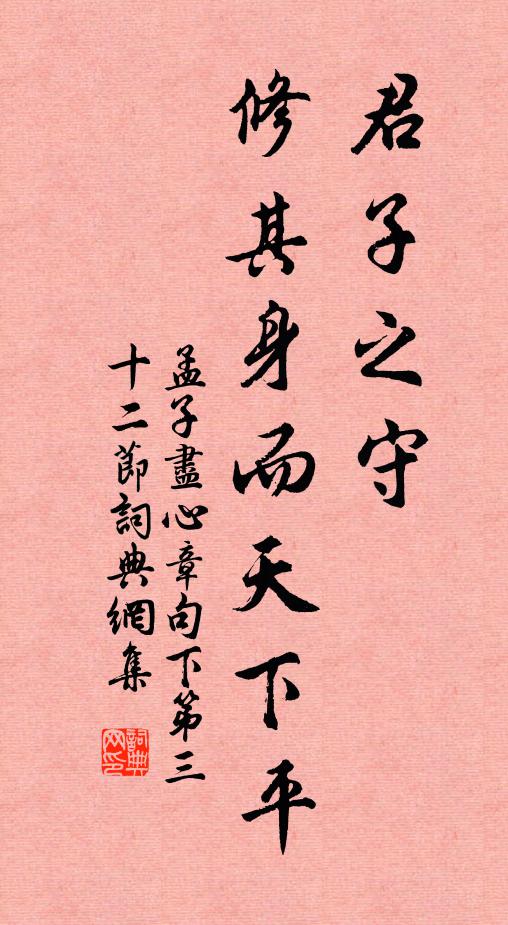 君子之守
修其身而天下平
孟子盡心章句下第三
十二節詞典網集
詞典网印